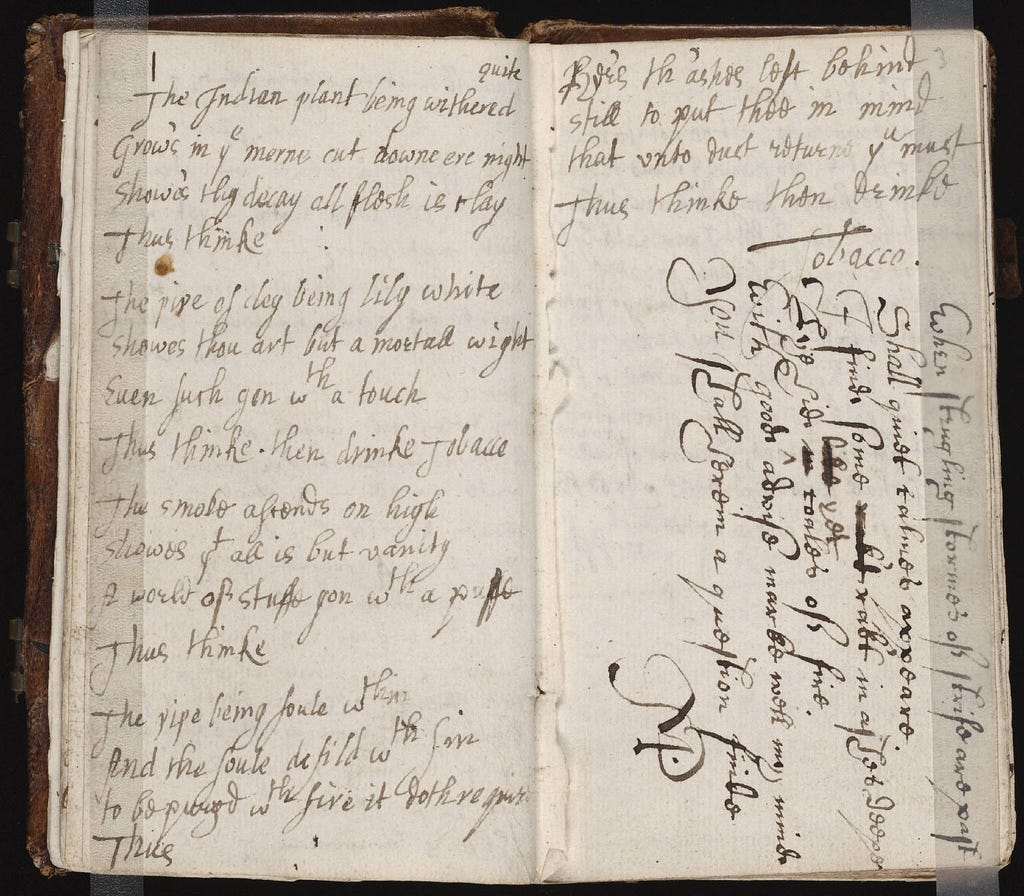 1
quite
The Indian plant being withered
Grow's in yᵉ morne cut downe ere night
Showes thy decay all flesh is clay
Thus thinke
The pipe of cley being lily white
Showes thou art but a mortall wight
Euen such gon wᵗʰ a touch
Thus thinke. then drinke Tobacco
The smoke ascends on high
Showes yᵗ all is but vanity
A world of stuffe gon wᵗʰ a puffe
Thus thinke
The pipe being foule wᵗʰin
And the soule defild wᵗʰ sin
to be purged wᵗʰ fire it doth requir
Thus
th'ashes left behind
still to put thee in mind
that vnto dust returne yᵘ must
Thus thinke then drinke
Tobacco.
When strugling stormes of strife are past
Shall quiet calmes appeare.
I find some in ashes deepe
coales of fire.
With good advise marke well my mind
You shall herein a question finde